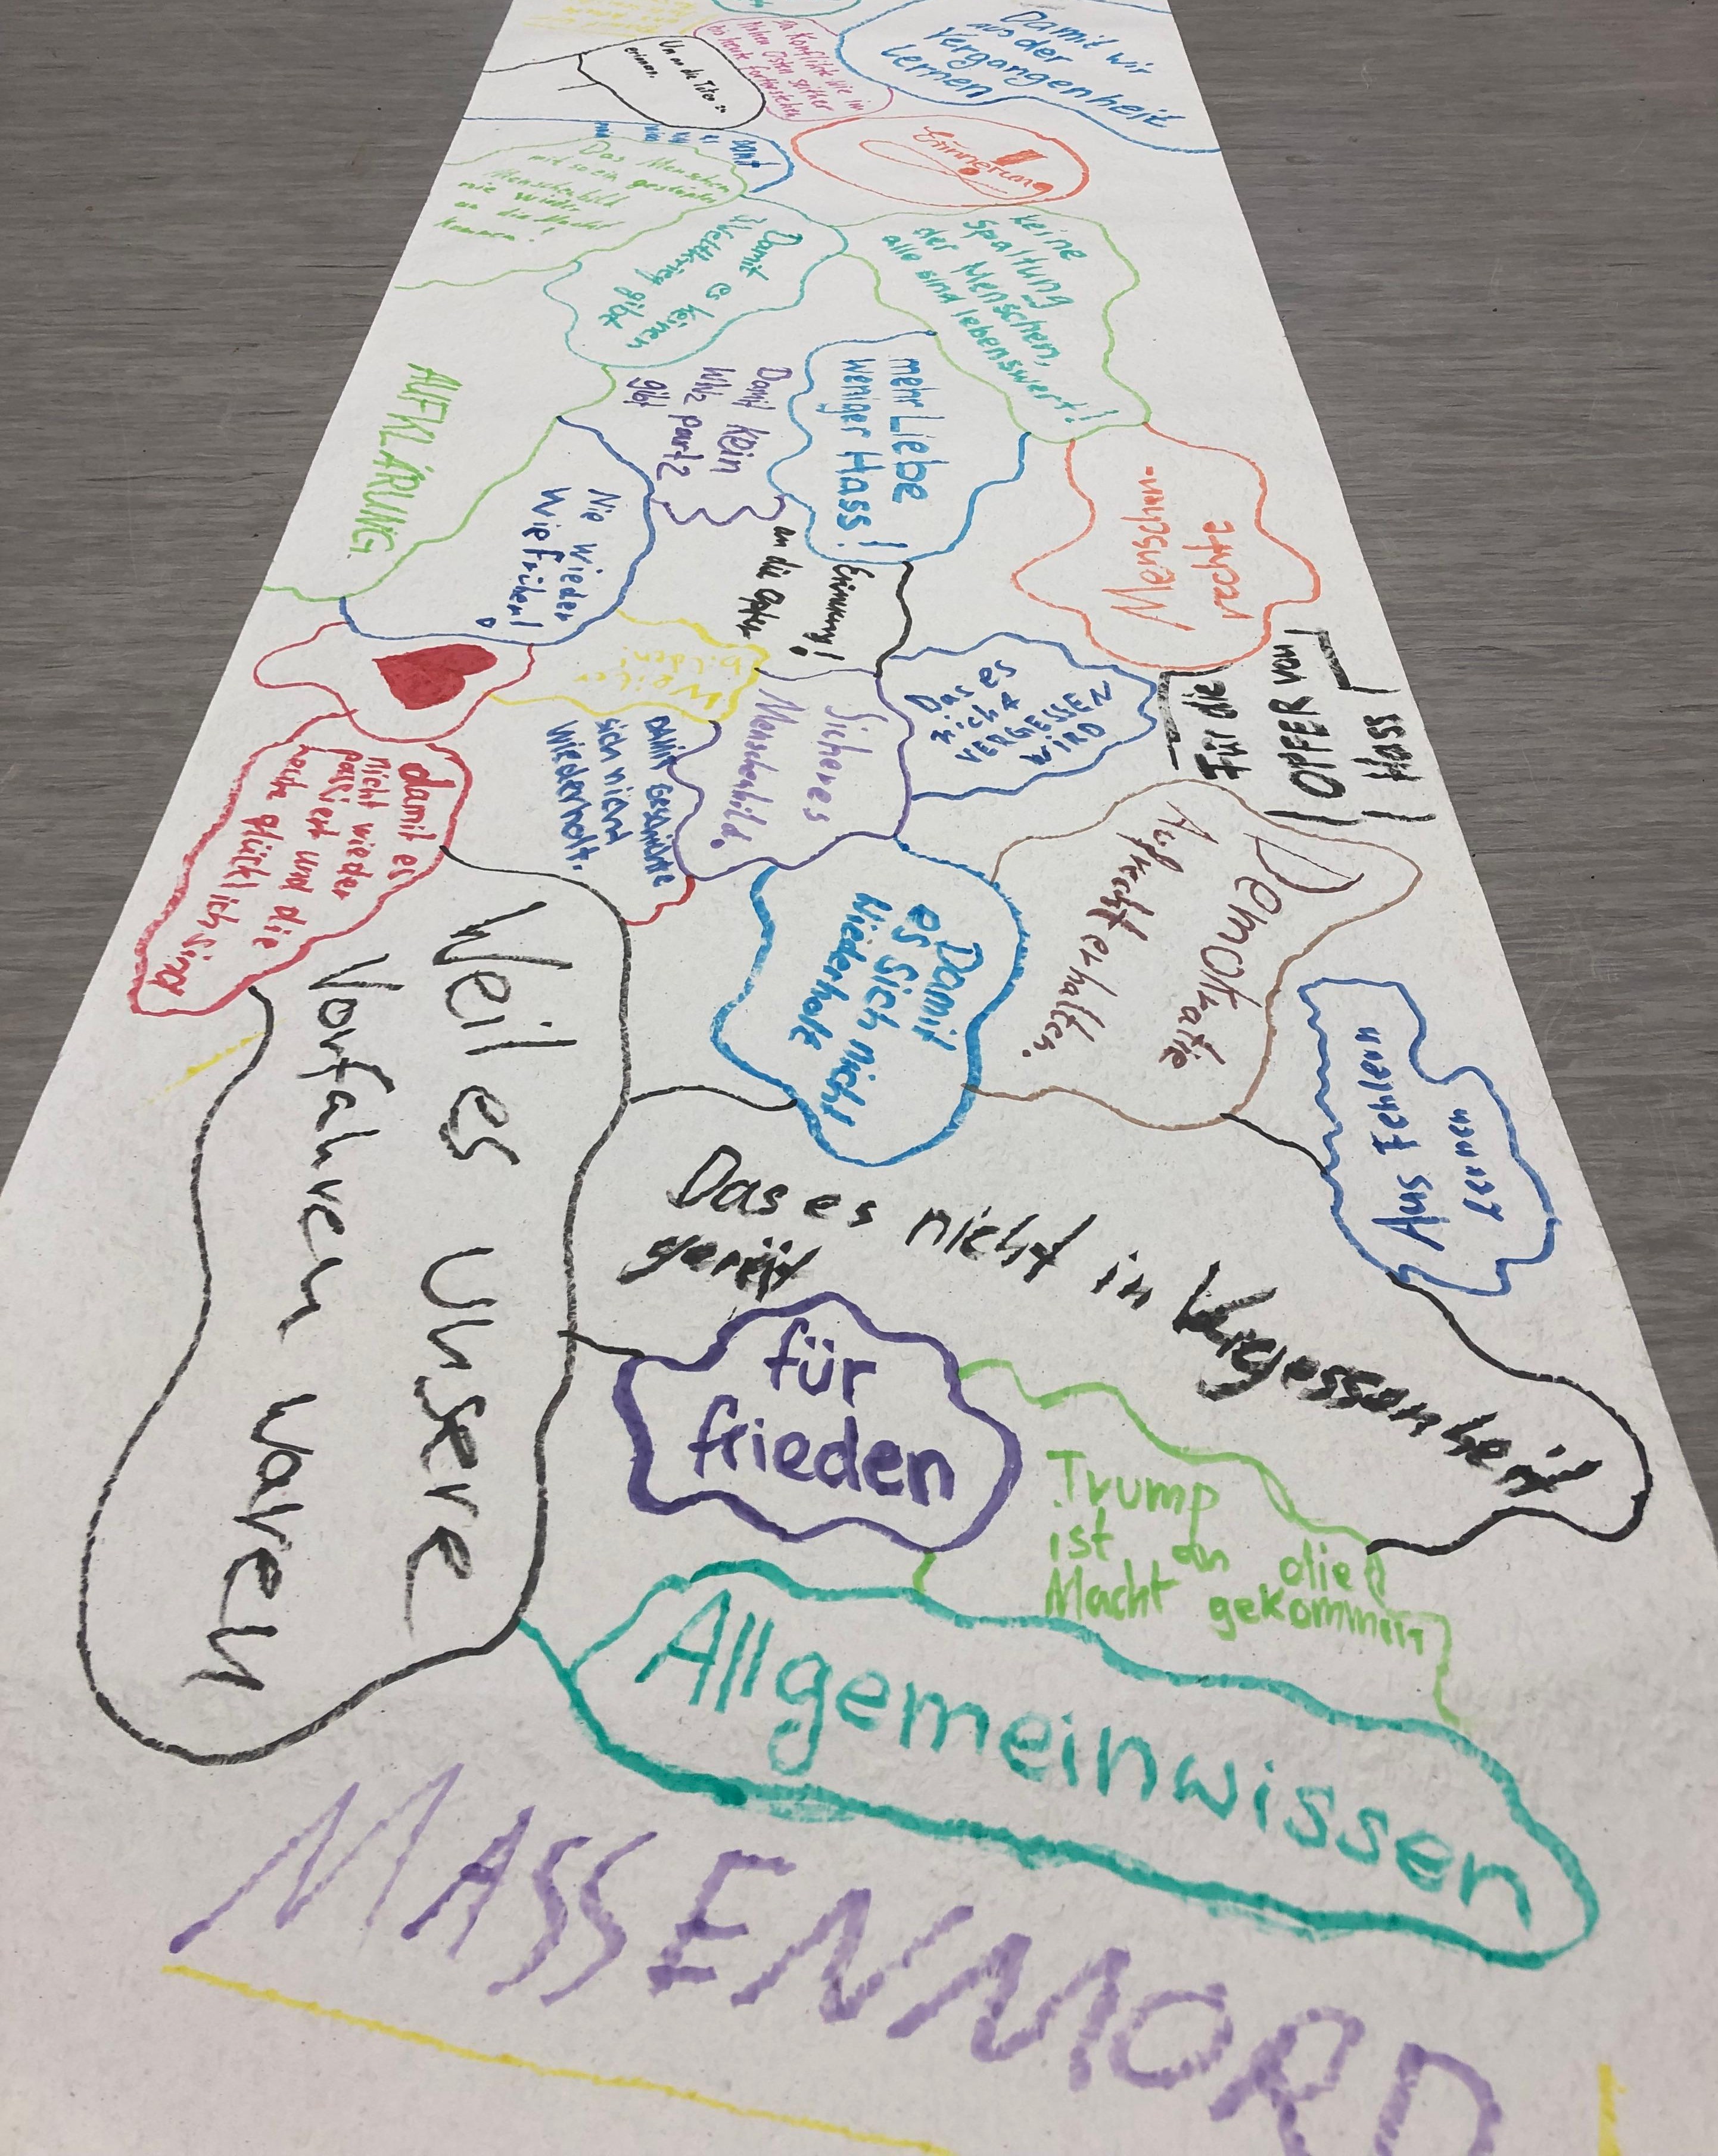 Damit wir
aus der
Vergangenheit
lernen
Konflikte wie im
Erinnerung
Das Menschen
mit so ein gestörten
Menschenbild
nie wieder
an die Macht
kommen!
Damit es keinen
3 Weltkrieg gibt
keine
Spaltung
der Menschen,
alle sind lebenswert!
mehr Liebe
weniger Hass!
Damit kein
WW2 part2
gibt
AUFKLÄRUNG
Nie wieder
wie früher!
Menschen-
rechte
Erinnerung!
an die Opfer
Weiter
bilden!
Das es
nicht
VERGESSEN
WIRD
Für die
OPFER von
Hass
Sicheres
Menschenbild.
sich nicht
wiederholt.
damit es
nicht wieder
passiert und die
Demokratie
Aufrecht erhalten.
Damit
es sich nicht
wiederholt
Aus Fehlern
lernen
Weil es unsere
Vorfahren waren
Das es nicht in Vergessenheit
gerät
für
frieden
Trump
ist an die
Macht gekommen
Allgemeinwissen
MASSENMORD